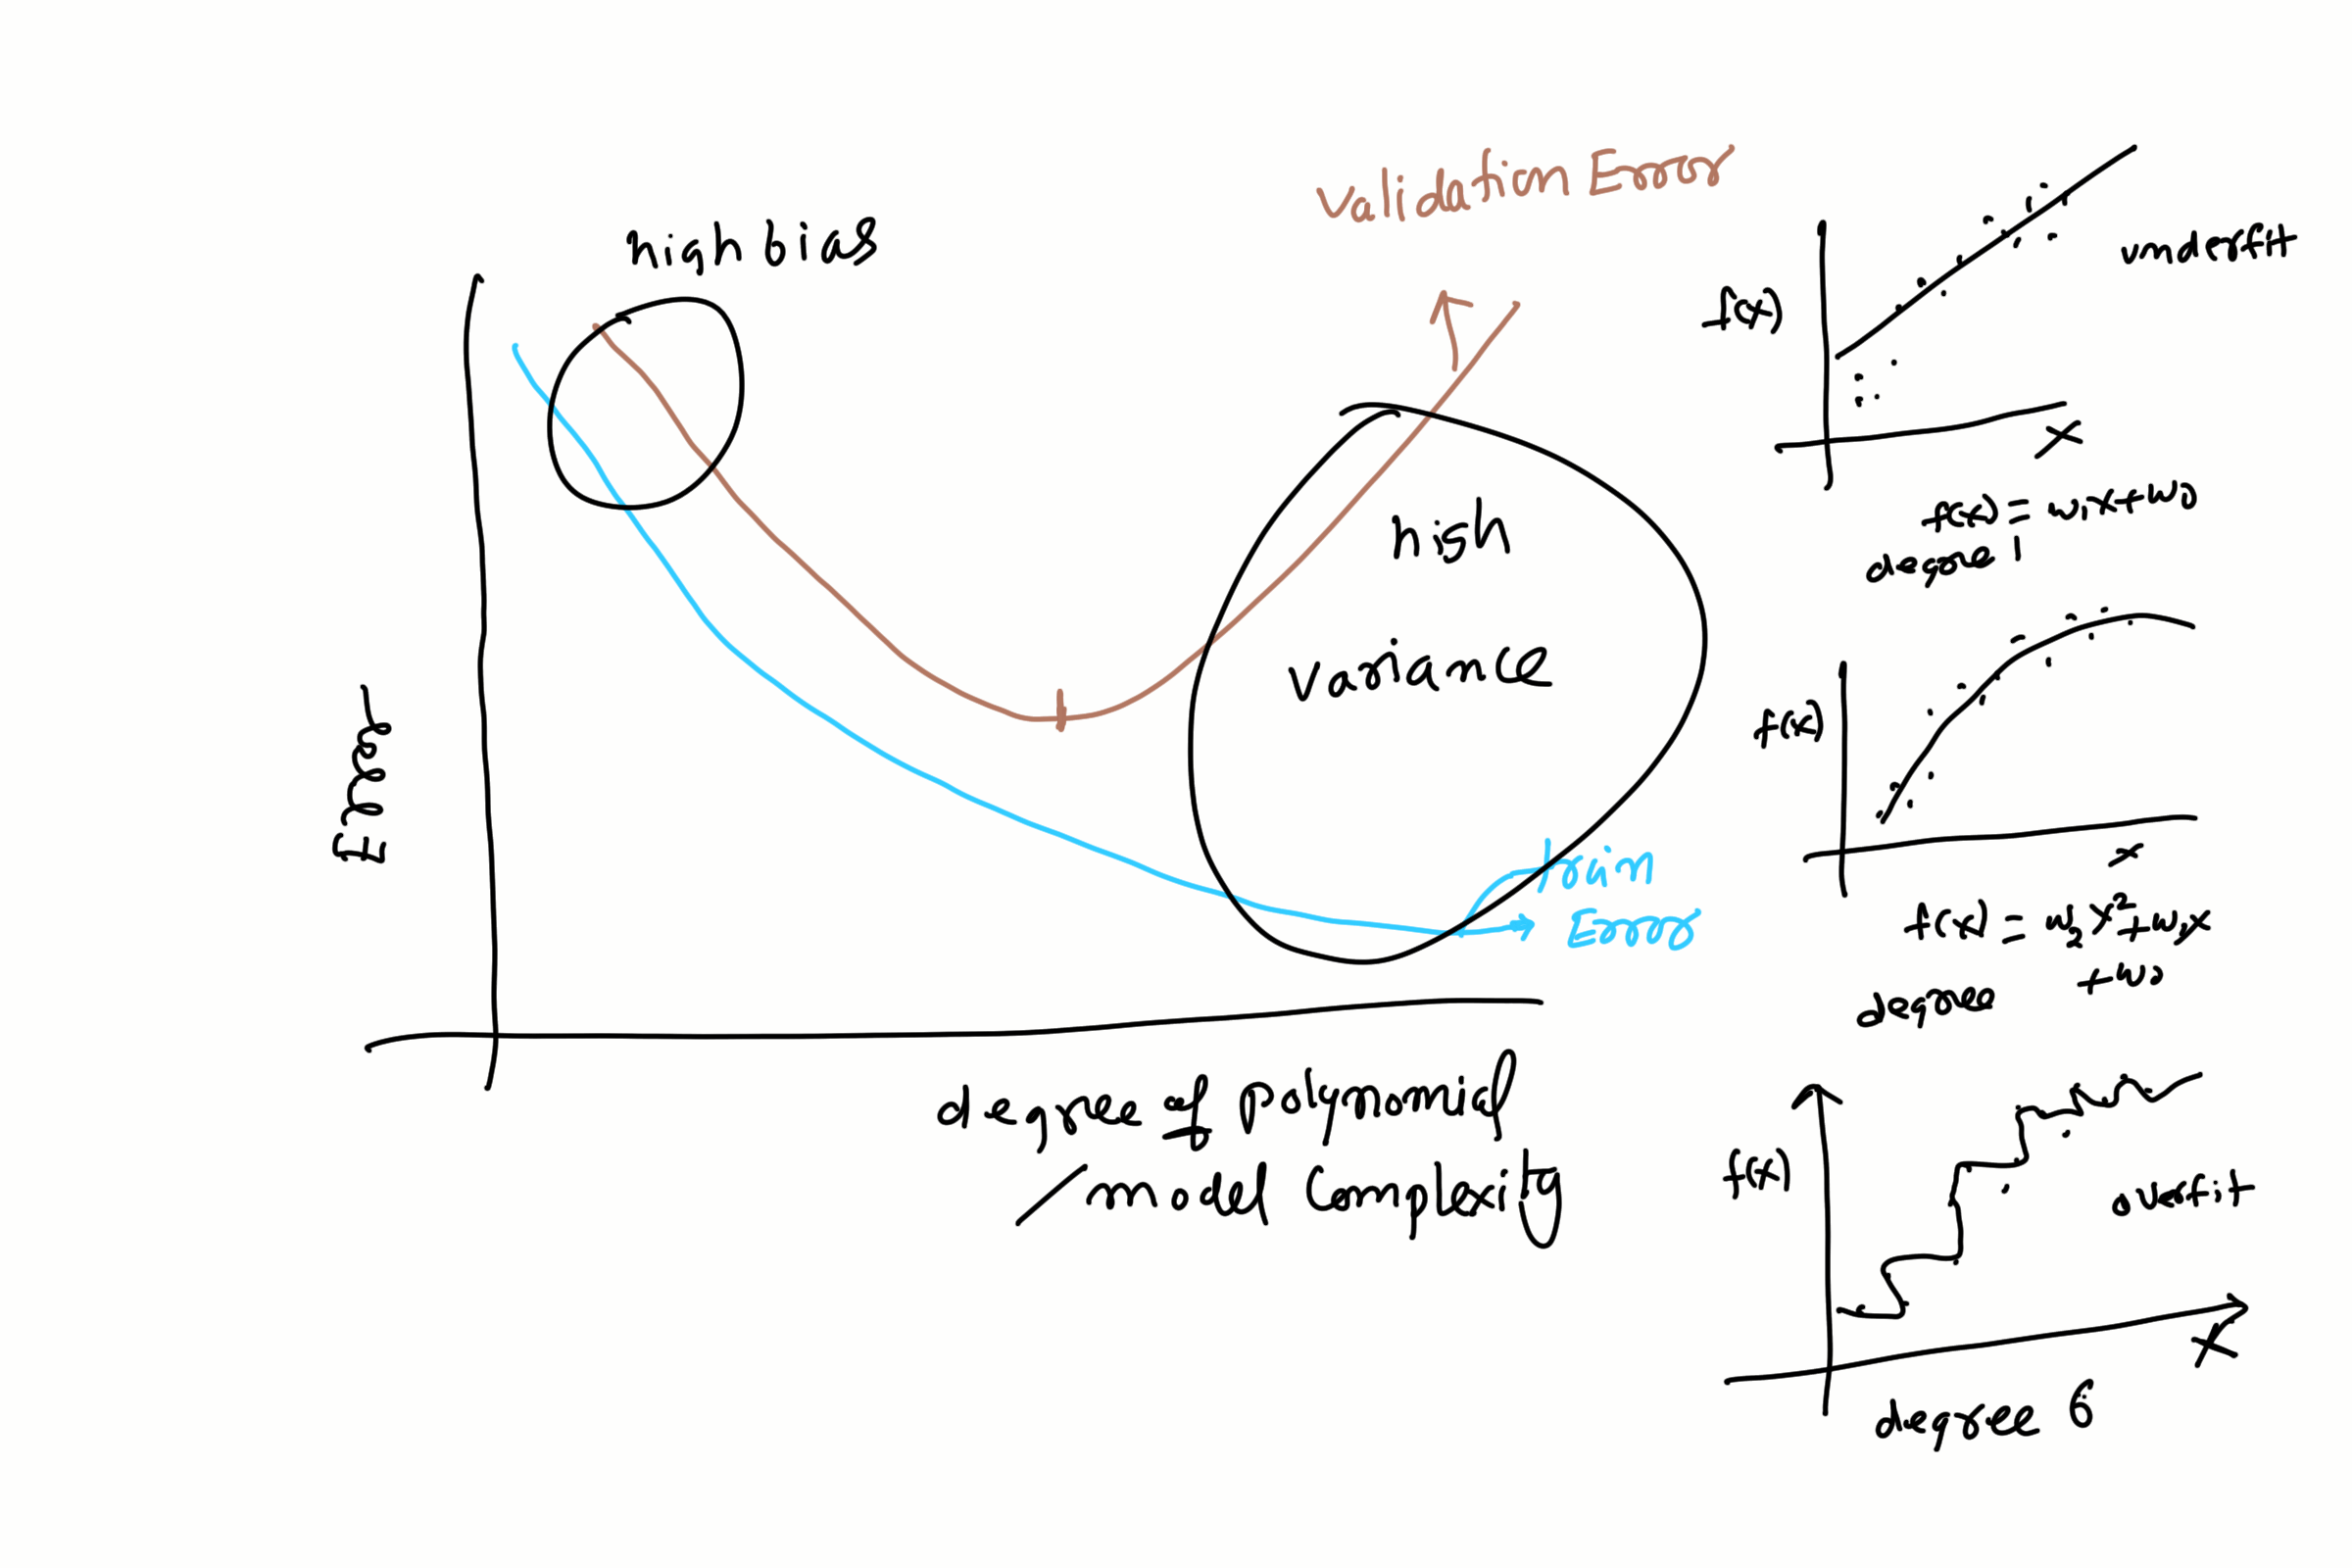 high bias
Validation Error
Error
high
variance
train
Error
degree of polynomial
/model Complexity
underfit
f(x)
x
f(x) = w1x+w0
degree 1
f(x)
x
f(x) = w2x²+w1x
+w0
degree
f(x)
overfit
x
degree 6